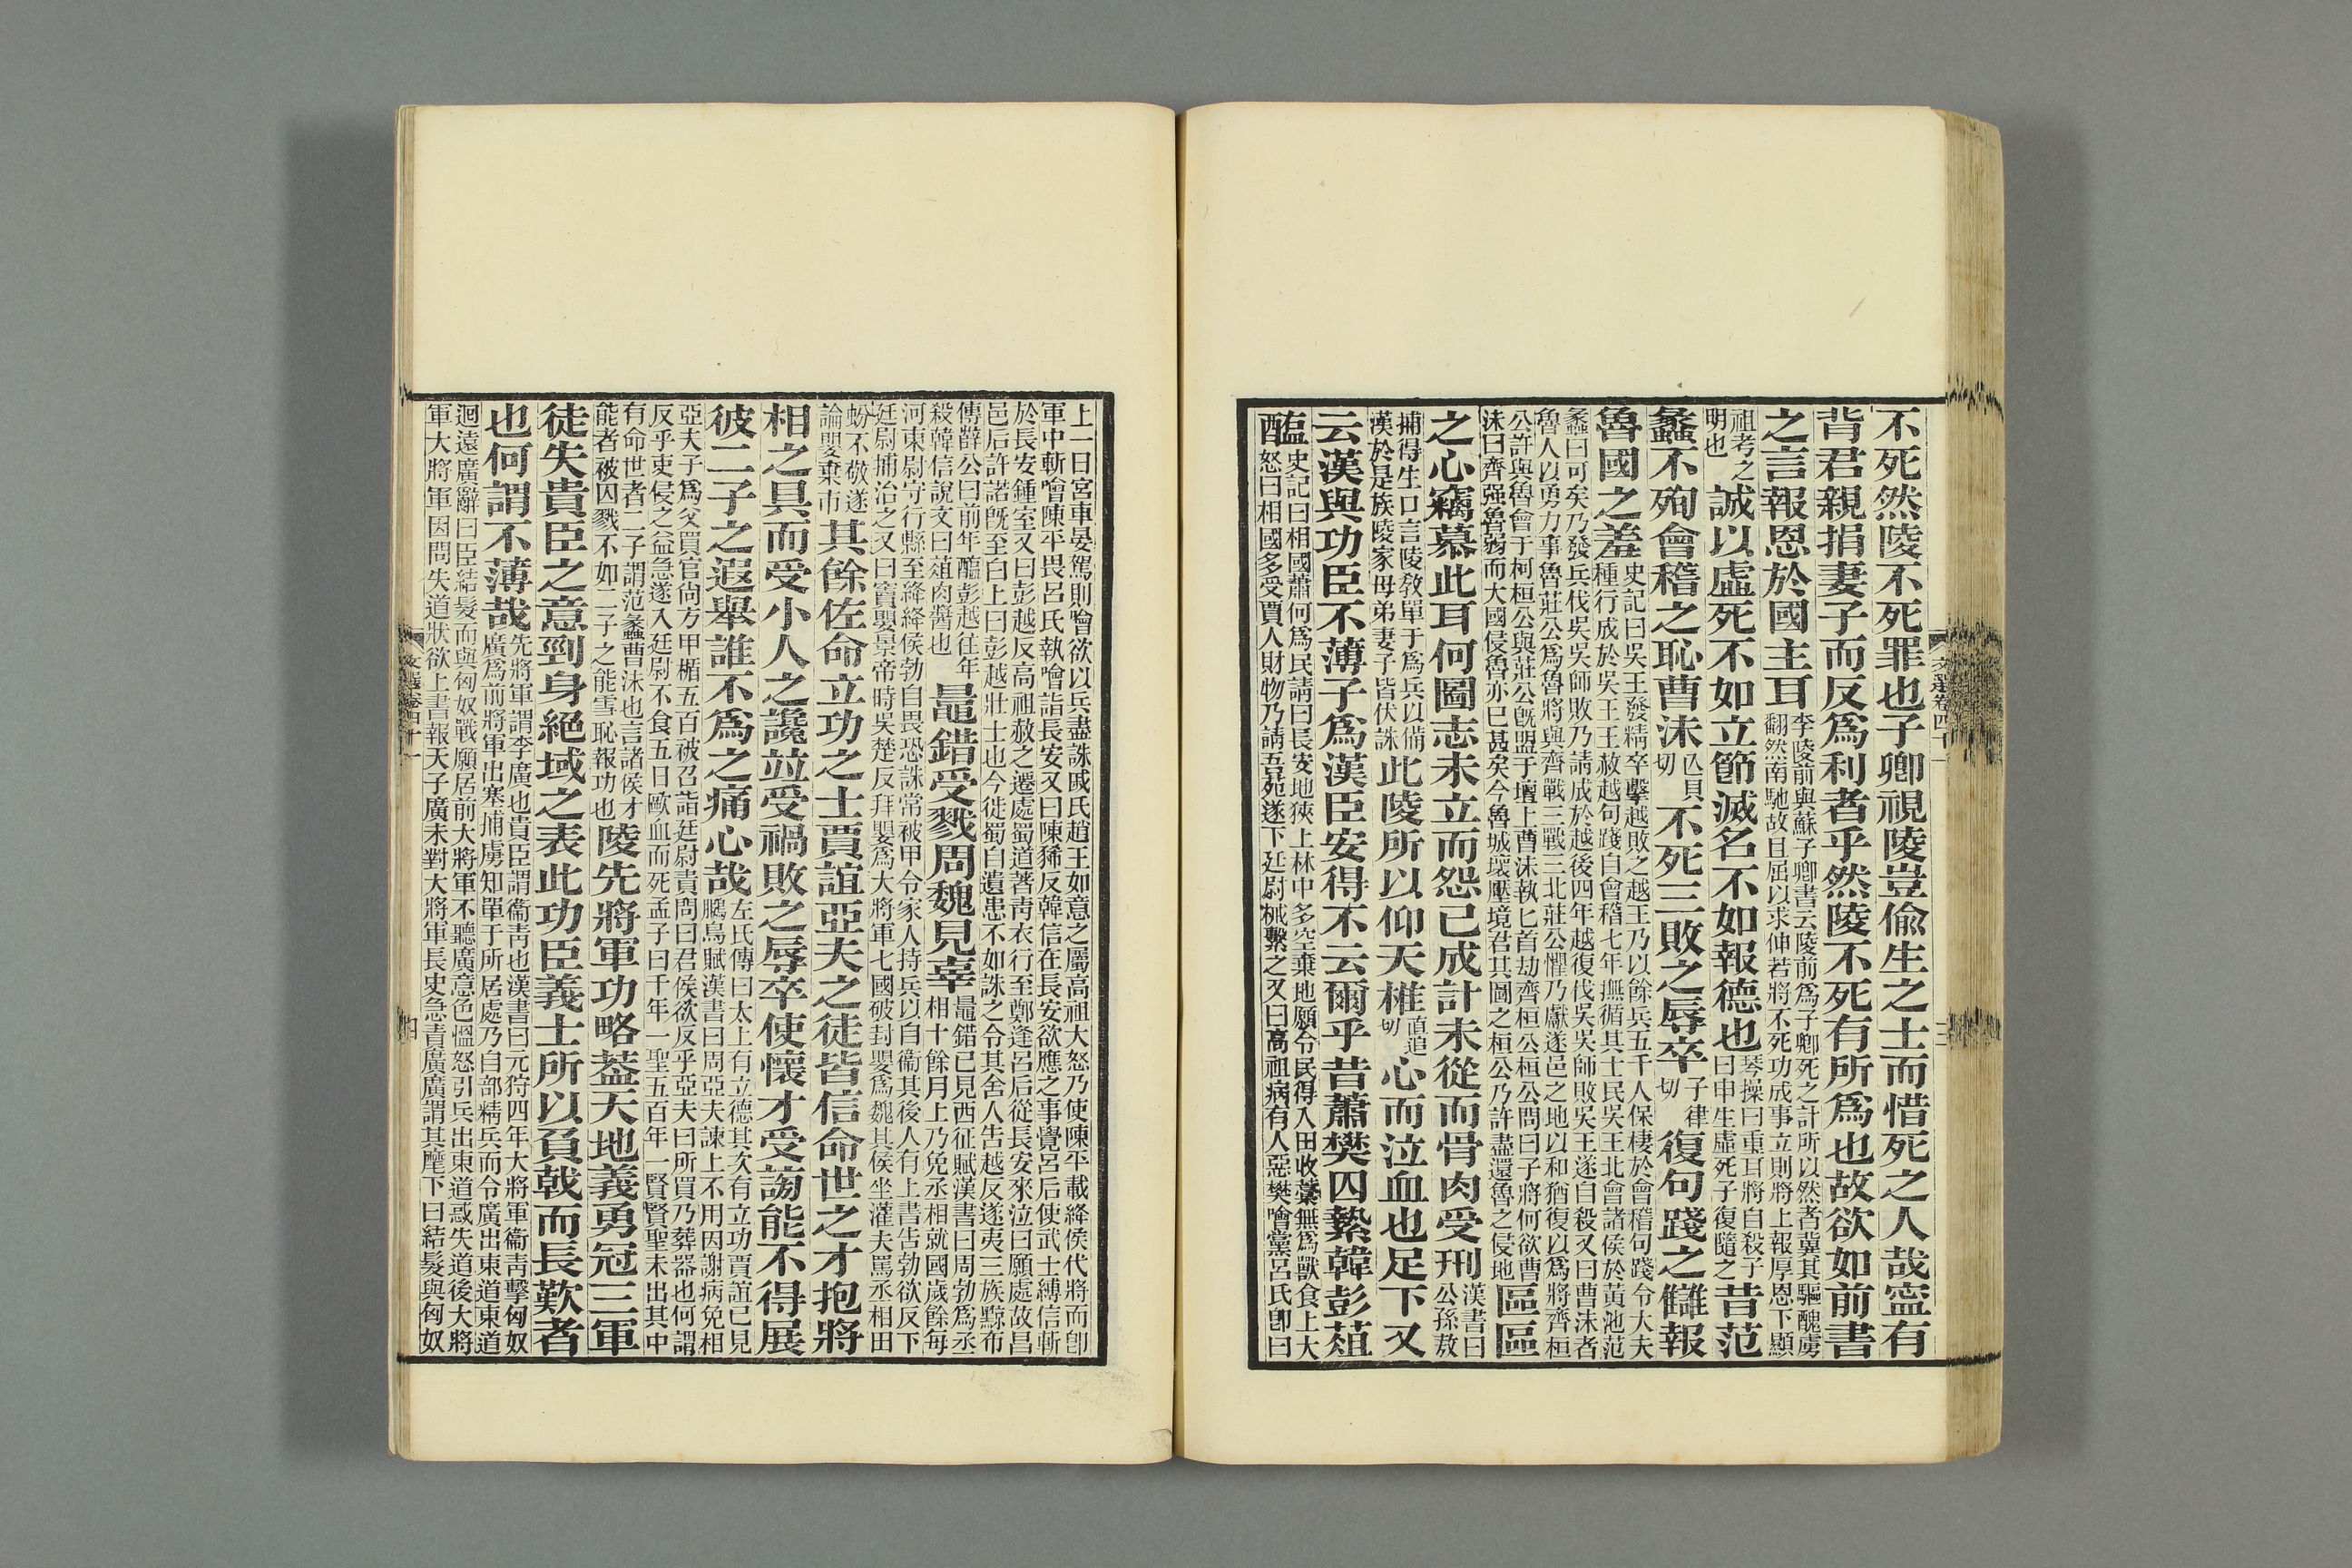 文選卷四十一
三
不死然陵不死罪也子卿視陵豈偷生之士而惜死之人哉寧有
背君親捐妻子而反爲利者乎然陵不死有所爲也故欲如前書
之言報恩於國主耳李陵前與蘇子卿書云陵前爲子卿死之計所以然者冀其驅醜虜翻然南馳故且屈以求伸若將不死功成事立則將上報厚恩下顯
祖考之明也誠以虛死不如立節滅名不如報德也琴操曰重耳將自殺子曰申生虛死子復隨之昔范
蠡不殉會稽之恥曹沬亾貝切不死三敗之辱卒子律切復句踐之讎報
魯國之羞史記曰吳王發精卒擊越敗之越王乃以餘兵五千人保棲於會稽句踐令大夫種行成於吳王王赦越句踐自會稽七年撫循其士民吳王北會諸侯於黃池范
蠡曰可矣乃發兵伐吳吳師敗乃請成於越後四年越復伐吳吳師敗吳王遂自殺又曰曹沬者魯人以勇力事魯莊公爲魯將與齊戰三戰三北莊公懼乃獻遂邑之地以和猶復以爲將齊桓
公許與魯會于柯桓公與莊公旣盟于壇上曹沬執匕首劫齊桓公桓公問曰子將何欲曹沬曰齊强魯弱而大國侵魯亦已甚矣今魯城壞壓境君其圖之桓公乃許盡還魯之侵地區區
之心竊慕此耳何圖志未立而怨已成計未從而骨肉受刑漢書曰公孫敖
捕得生口言陵敎單于爲兵以備漢於是族陵家母弟妻子皆伏誅此陵所以仰天椎直追切心而泣血也足下又
云漢與功臣不薄子爲漢臣安得不云爾乎昔蕭樊囚縶韓彭葅
醢史記曰相國蕭何爲民請曰長安地狹上林中多空棄地願令民得入田收藁無爲獸食上大怒曰相國多受賈人財物乃請吾苑遂下廷尉械繫之又曰高祖病有人惡樊噲黨呂氏卽曰
上一日宮車晏駕則噲欲以兵盡誅戚氏趙王如意之屬高祖大怒乃使陳平載絳侯代將而卽軍中斬噲陳平畏呂氏執噲詣長安又曰陳豨反韓信在長安欲應之事覺呂后使武士縛信斬
於長安鍾室又曰彭越反高祖赦之遷處蜀道著靑衣行至鄭逢呂后從長安來泣曰願處故昌邑后許諾旣至白上曰彭越壯士也今徙蜀自遺患不如誅之令其舍人告越反遂夷三族黥布
傳薛公曰前年醢彭越往年殺韓信說文曰葅肉醬也鼂錯受戮周魏見辜鼂錯已見西征賦漢書曰周勃爲丞相十餘月上乃免丞相就國歲餘每
河東尉守行縣至絳絳侯勃自畏恐誅常被甲令家人持兵以自衞其後人有上書告勃欲反下廷尉捕治之又曰竇嬰景帝時吳楚反拜嬰爲大將軍七國破封嬰爲魏其侯坐灌夫罵丞相田
蚡不敬遂論嬰棄市其餘佐命立功之士賈誼亞夫之徒皆信命世之才抱將
相之具而受小人之讒竝受禍敗之辱卒使懷才受謗能不得展
彼二子之遐舉誰不爲之痛心哉左氏傳曰太上有立德其次有立功賈誼已見鵩鳥賦漢書曰周亞夫諫上不用因謝病免相
亞夫子爲父買官尙方甲楯五百被召詣廷尉責問曰君侯欲反乎亞夫曰所買乃葬器也何謂反乎吏侵之益急遂入廷尉不食五日歐血而死孟子曰千年一聖五百年一賢賢聖未出其中
有命世者二子謂范蠡曹沬也言諸侯才能者被囚戮不如二子之能雪恥報功也陵先將軍功略葢天地義勇冠三軍
徒失貴臣之意剄身絕域之表此功臣義士所以負戟而長歎者
也何謂不薄哉先將軍謂李廣也貴臣謂衞靑也漢書曰元狩四年大將軍衞靑擊匈奴廣爲前將軍出塞捕虜知單于所居處乃自部精兵而令廣出東道東道
迴遠廣辭曰臣結髮而與匈奴戰願居前大將軍不聽廣意色慍怒引兵出東道惑失道後大將軍大將軍因問失道狀欲上書報天子廣未對大將軍長史急責廣廣謂其麾下曰結髮與匈奴
文選卷四十一
四